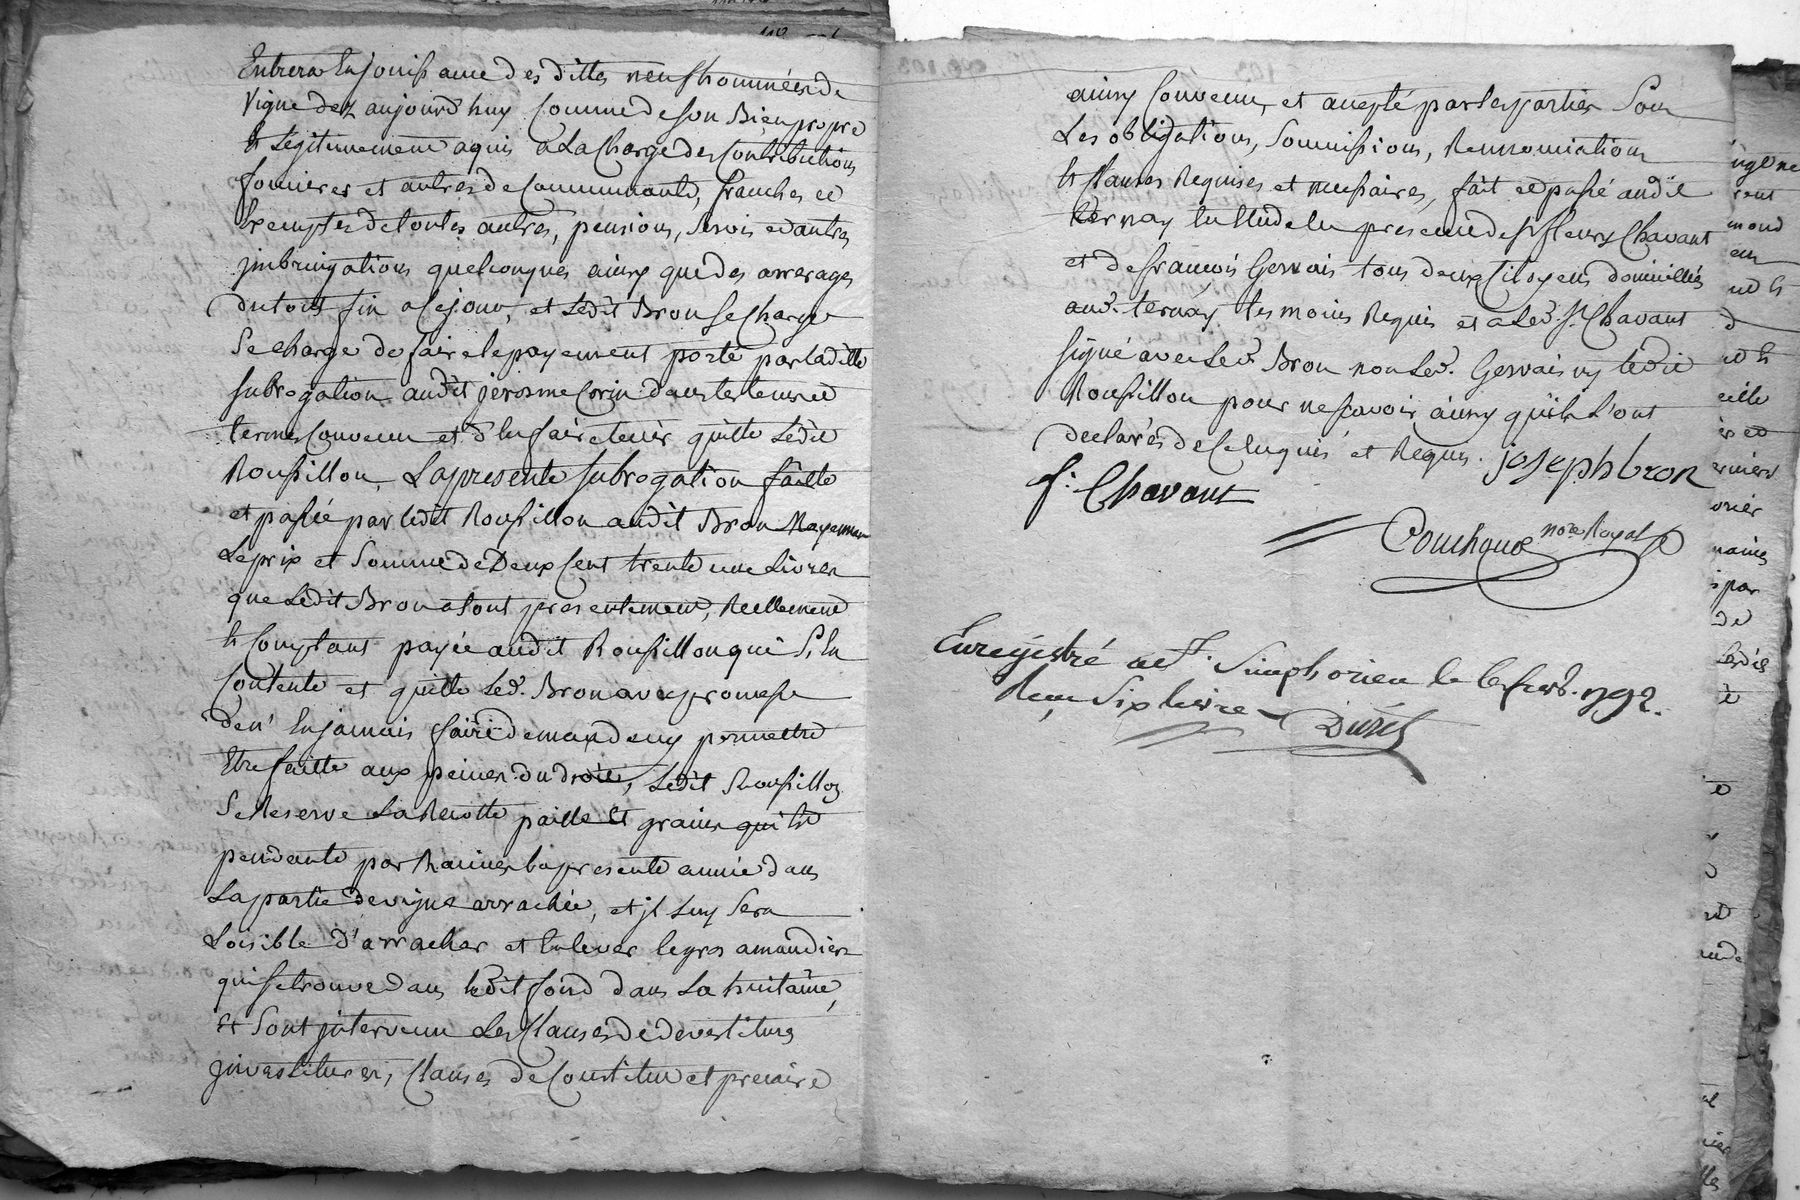 Entrera En jouissance des dittes neuf hommées de
vigne dez aujourd'huy Comme de son Bien propre
Et Légitimement aquis a La Charge des Contributions
foncieres et autres de Communauté, franches et
Exemptes de toutes autres, pensions, servis et autres
jmbringations quelconques ainsy que des arrerages
du tout fin a Ce jour, et Ledit Bron se Charge
Se charge de faire le payement porté par la ditte
subrogation audit jerosme Corin dans les tems et
termes Convenu et d'En faire tenir quitte Ledit
Roussillon, La presente subrogation faitte
et passée par ledit Roussillon audit Bron Moyennan
Le prix et Somme de Deux Cent trente une Livres
que Ledit Bron a tout presentement, Reellement
Et Comptant payée audit Roussillon qui S'En
Contente et quitte Led. Bron avec promesse
de n'En jamais faire demande ny permettre
Etre faitte aux peines du droit, Ledit Roussillon
Se Reserve La Recolte paille Et grains qui Est
pendante par Racines la presente année dans
La partie de vigne arrachée, et jl Luy Sera
Loisible d'arracher et Enlever le gros amandier
qui se trouve dans ledit fond dans La huitaine,
Et Sont jntervenu Les Clauses de devestitures
jnvestitures, Clauses de Constitut et precaire
ainsy Convenu, et accepté par les parties Sous
Les obligations, Soumissions, Rennonciations
Et Clauses Requises et necessaires, fait et passé audit
ternay En l'Etude En presence de Sr fleury Chavant
et de francois Gervais tous deux Citoyens domicilliés
aud. ternay temoins Requis et a Led. Sr Chavant
signé avec Led. Bron non Led. Gervais ny ledit
Roussillon pour ne scavoir ainsy qu'ils L'ont
declarés de Ce Enquis et Requis. joseph bron
f. Chavant
nore Royal
Enregistré a St. Simphorien le 6 fevr. 1792.
Reçu Six livre